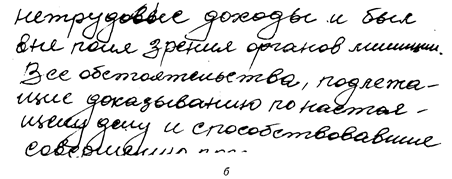 нетрудовые доходы и был
вне поля зрения органов милиции.
Все обстоятельства, подлежа-
щие доказыванию по настоя-
щему делу и способствовавшие
совершению
б